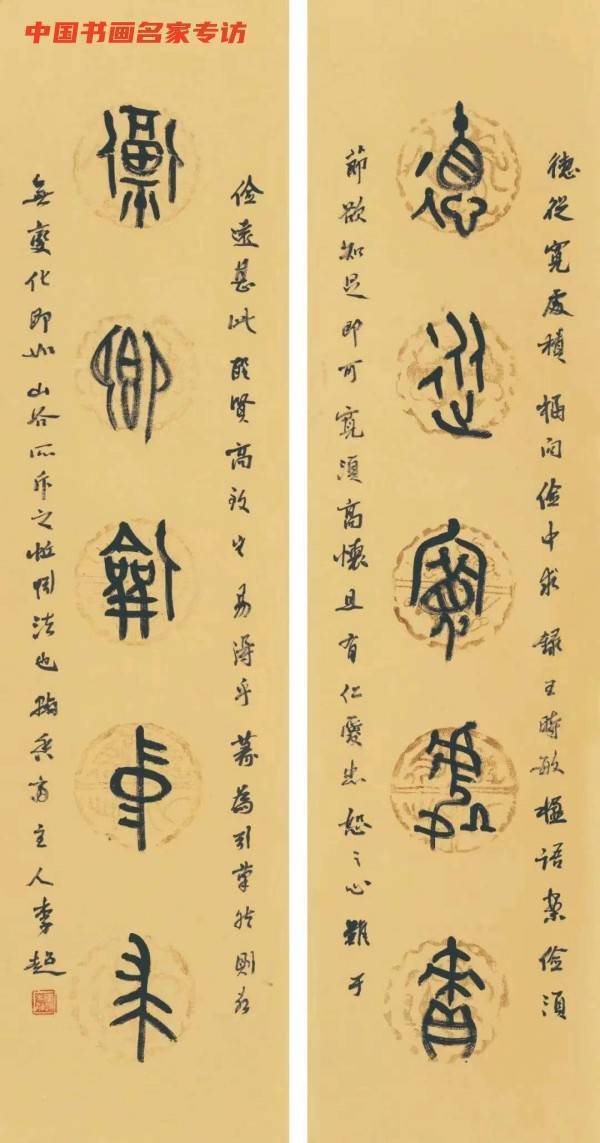 中国书画名家专访
德從寬處積福向儉中求錄王時敏楹語案儉須
德從寬處積
節欲知足即可寬須高懷且有仁愛忠恕之心難于
儉遠甚此賢高致易得乎篆為引筆然則若
福向儉中求
無變化即如山谷所斥之法也齋主人李超